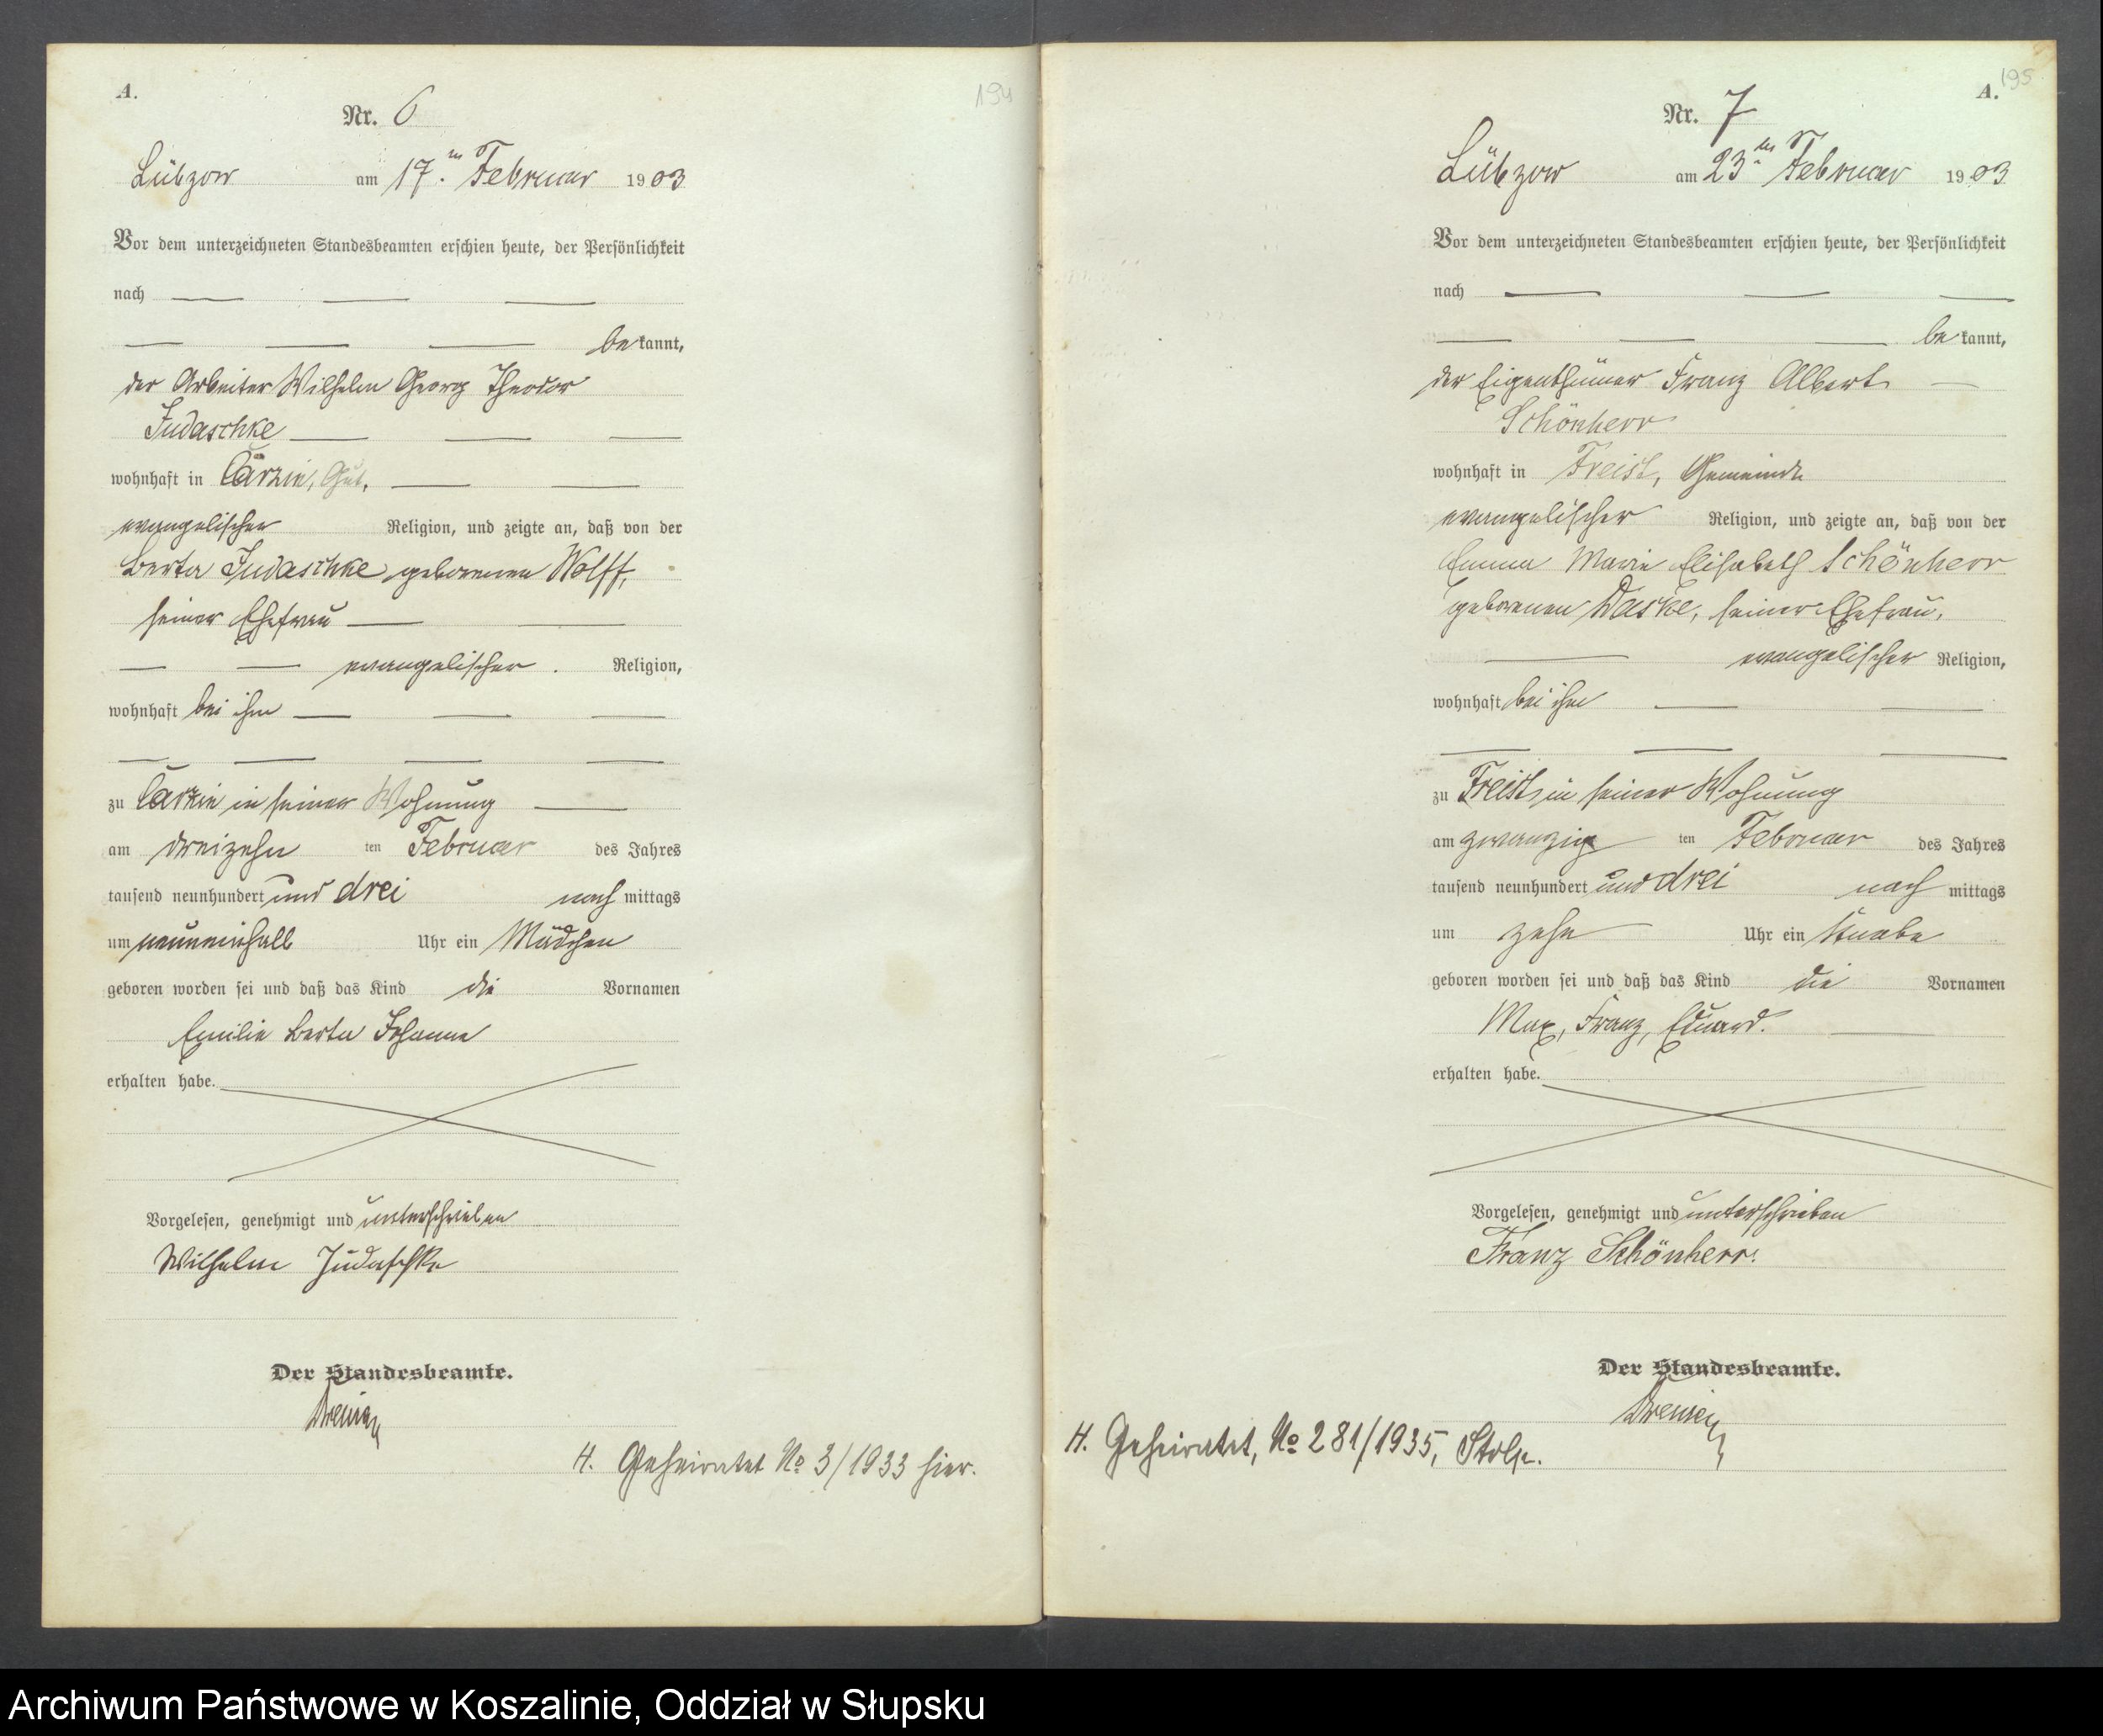 A.
194
Nr. 6
Lübzow am 17.ten Februar 1903
Vor dem unterzeichneten Standesbeamten erschien heute, der Persönlichkeit
nach
bekannt,
der Arbeiter Wilhelm Georg Theodor
Judaschke
wohnhaft in Carzin, Gut,
evangelischer Religion, und zeigte an, daß von der
Berta Judaschke geborenen Wolff,
seiner Ehefrau
evangelischer Religion,
wohnhaft bei ihm
zu Carzin in seiner Wohnung
am dreizehn ten Februar des Jahres
tausend neunhundert und drei nach mittags
um neuneinhalb Uhr ein Mädchen
geboren worden sei und daß das Kind die Vornamen
Emilie Berta Johanna
erhalten habe.
Vorgelesen, genehmigt und unterschrieben
Wilhelm Judaschke
Der Standesbeamte.
H. Geheiratet No 3/1933 hier.
195
A.
Nr. 7
Lübzow am 23.ten Februar 1903
Vor dem unterzeichneten Standesbeamten erschien heute, der Persönlichkeit
nach
bekannt,
der Eigenthümer Franz Albert
Schönherr
wohnhaft in Freist, Gemeinde
evangelischer Religion, und zeigte an, daß von der
Emma Marie Elisabeth Schönherr
geborenen Daske, seiner Ehefrau,
evangelischer Religion,
wohnhaft bei ihm
zu Freist, in seiner Wohnung
am zwanzig ten Februar des Jahres
tausend neunhundert und drei nach mittags
um zehn Uhr ein Knabe
geboren worden sei und daß das Kind die Vornamen
Max, Franz, Eduard.
erhalten habe.
Vorgelesen, genehmigt und unterschrieben
Franz Schönherr.
Der Standesbeamte.
H. Geheiratet, No 281/1935, Stolp.
Archiwum Państwowe w Koszalinie, Oddział w Słupsku